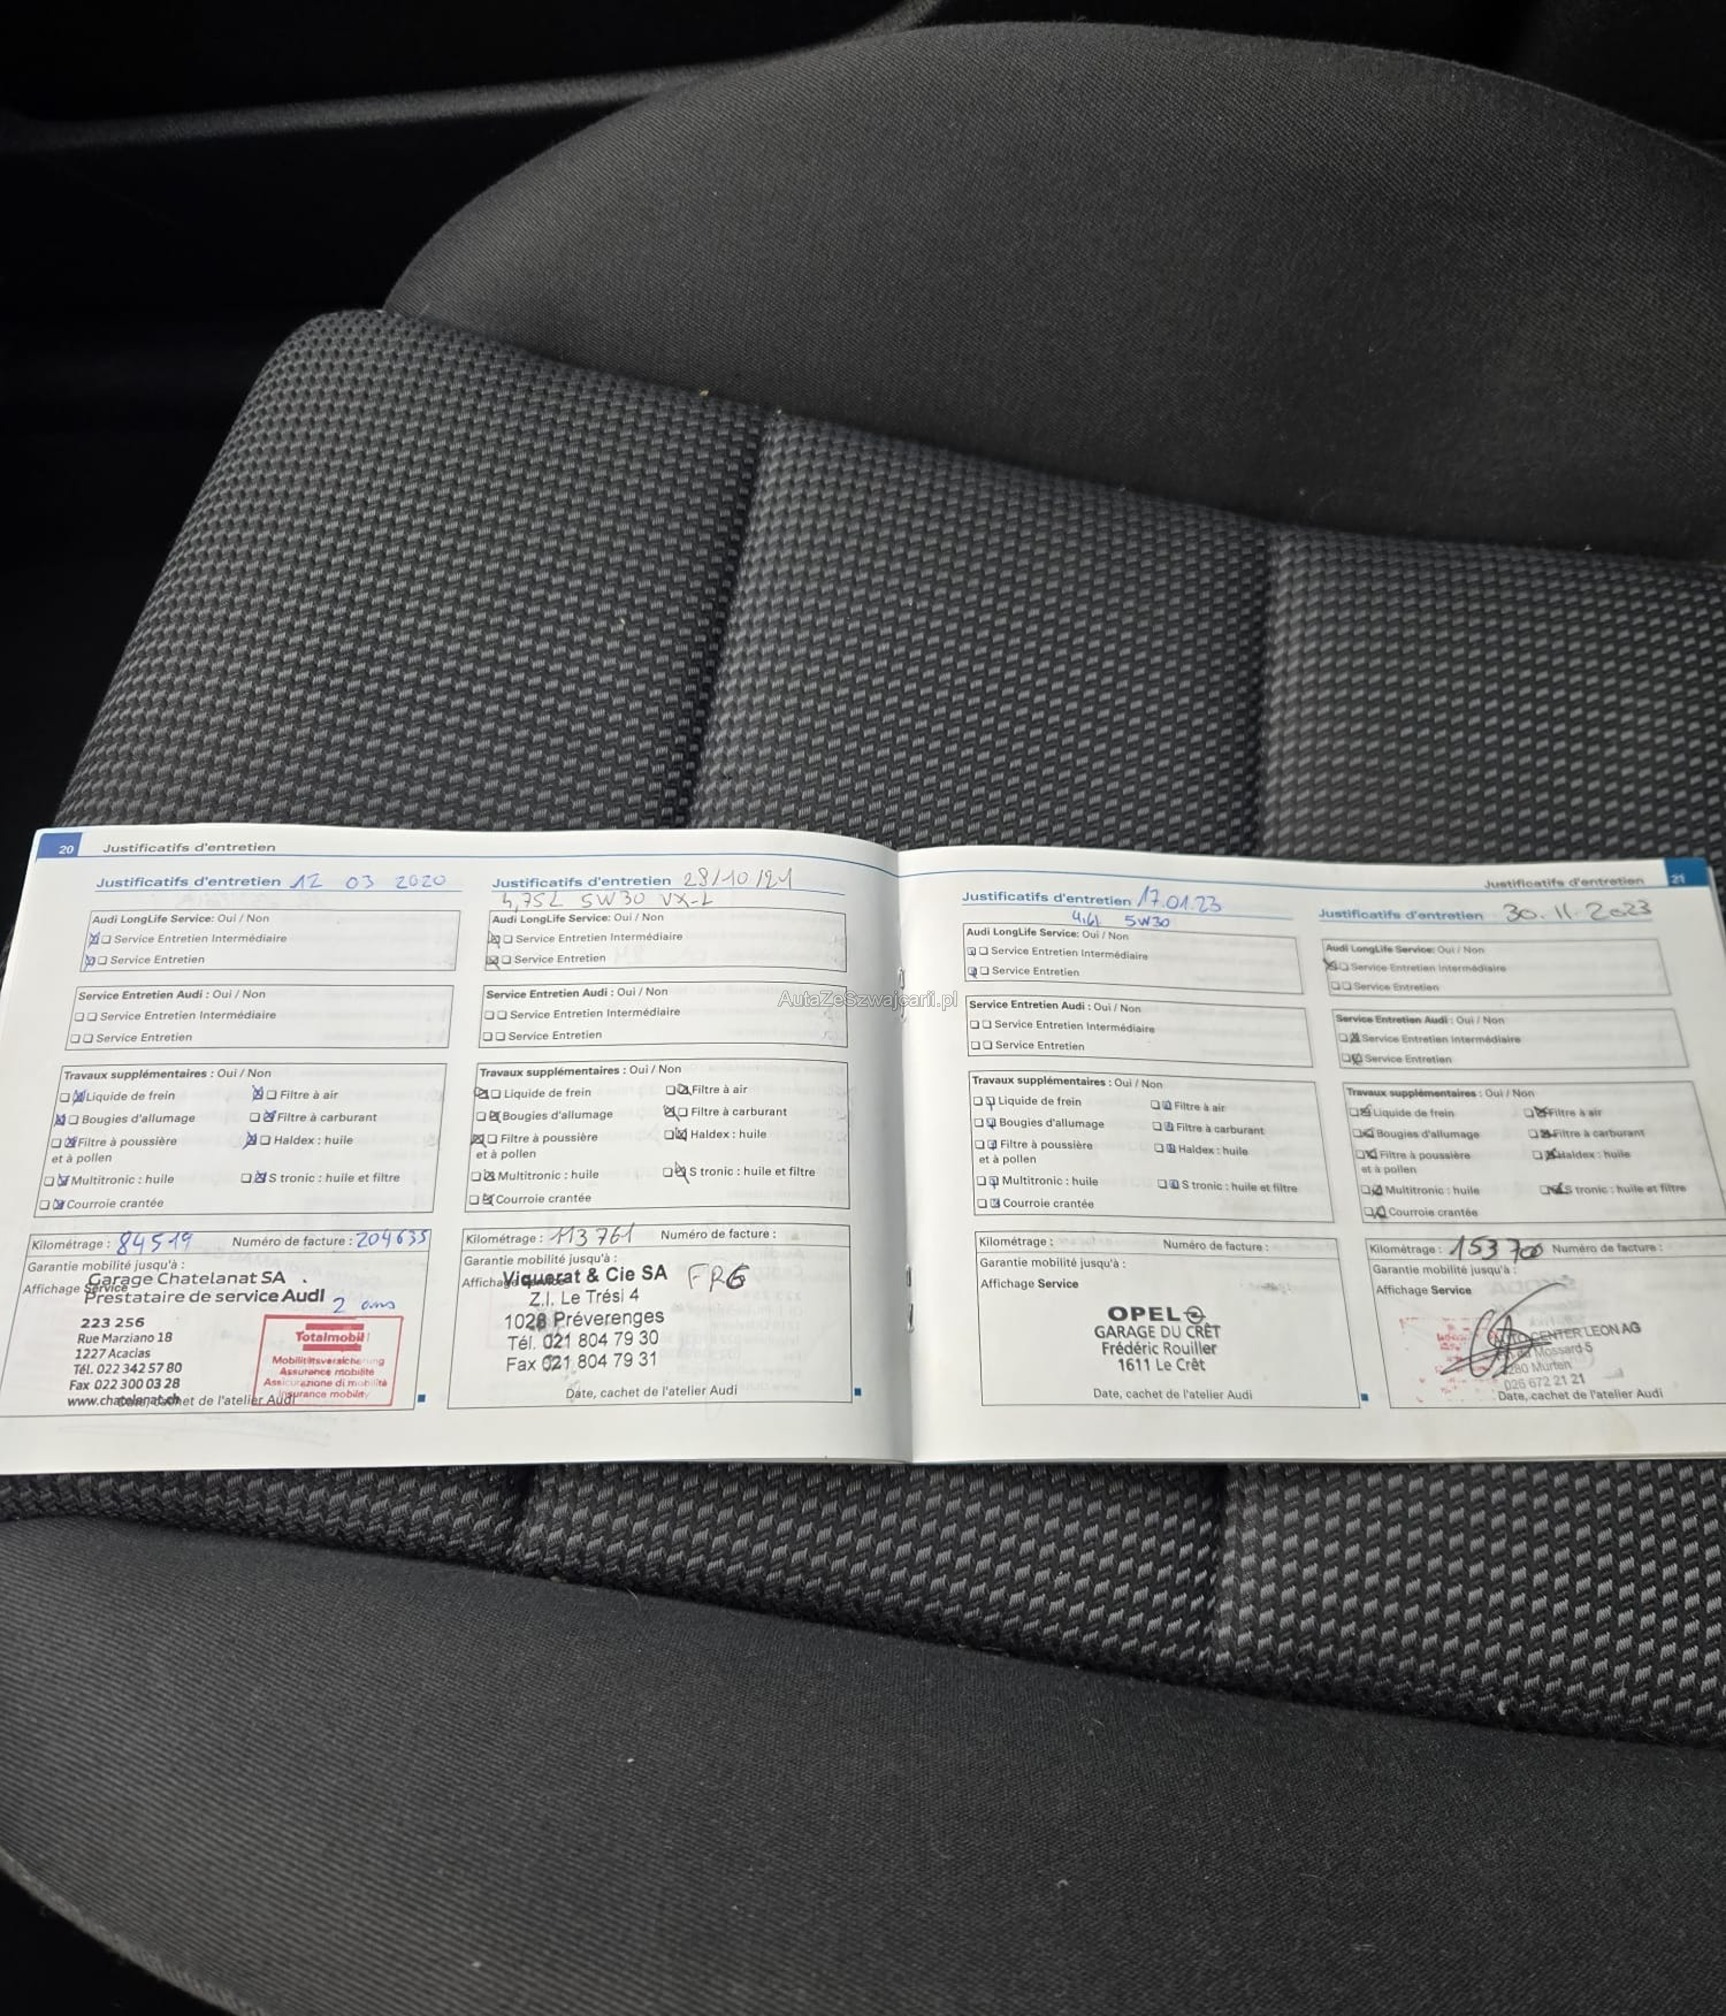 20 Justificatifs d'entretien
Justificatifs d'entretien 12 03 2020
Audi LongLife Service: Oui / Non
Service Entretien Intermédiaire
Service Entretien
Service Entretien Audi : Oui / Non
Service Entretien Intermédiaire
Service Entretien
Travaux supplémentaires : Oui / Non
Liquide de frein Filtre à air
Bougies d'allumage Filtre à carburant
Filtre à poussière Haldex : huile
et à pollen
Multitronic : huile S tronic : huile et filtre
Courroie crantée
Kilométrage : 84519 Numéro de facture : 204635
Garantie mobilité jusqu'à :
Affichage Service
Garage Chatelanat SA
Prestataire de service Audi
2 ans
223 256
Rue Marziano 18
1227 Acacias
Tél. 022 342 57 80
Fax 022 300 03 28
www.chatelanat.ch
Totalmobil!
Mobilitätsversicherung
Assurance mobilité
Assicurazione di mobilità
Insurance mobility
Date, cachet de l'atelier Audi
Justificatifs d'entretien 28/10/21
4,75L 5W30 VX-L
Audi LongLife Service: Oui / Non
Service Entretien Intermédiaire
Service Entretien
Service Entretien Audi : Oui / Non
Service Entretien Intermédiaire
Service Entretien
Travaux supplémentaires : Oui / Non
Liquide de frein Filtre à air
Bougies d'allumage Filtre à carburant
Filtre à poussière Haldex : huile
et à pollen
Multitronic : huile S tronic : huile et filtre
Courroie crantée
Kilométrage : 113761 Numéro de facture :
Garantie mobilité jusqu'à :
Affichage
Viquerat & Cie SA
Z.I. Le Trési 4
1028 Préverenges
Tél. 021 804 79 30
Fax 021 804 79 31
Date, cachet de l'atelier Audi
AutaZeSzwajcarii.pl
Justificatifs d'entretien 21
Justificatifs d'entretien 17.01.23
4.6l 5W30
Audi LongLife Service: Oui / Non
Service Entretien Intermédiaire
Service Entretien
Service Entretien Audi : Oui / Non
Service Entretien Intermédiaire
Service Entretien
Travaux supplémentaires : Oui / Non
Liquide de frein Filtre à air
Bougies d'allumage Filtre à carburant
Filtre à poussière Haldex : huile
et à pollen
Multitronic : huile S tronic : huile et filtre
Courroie crantée
Kilométrage : Numéro de facture :
Garantie mobilité jusqu'à :
Affichage Service
OPEL
GARAGE DU CRÊT
Frédéric Rouiller
1611 Le Crêt
Date, cachet de l'atelier Audi
Justificatifs d'entretien 30.11.2023
Audi LongLife Service: Oui / Non
Service Entretien Intermédiaire
Service Entretien
Service Entretien Audi : Oui / Non
Service Entretien Intermédiaire
Service Entretien
Travaux supplémentaires : Oui / Non
Liquide de frein Filtre à air
Bougies d'allumage Filtre à carburant
Filtre à poussière Haldex : huile
et à pollen
Multitronic : huile S tronic : huile et filtre
Courroie crantée
Kilométrage : 153 700 Numéro de facture :
Garantie mobilité jusqu'à :
Affichage Service
CENTER LEON AG
Mossard 5
3280 Murten
026 672 21 21
Date, cachet de l'atelier Audi